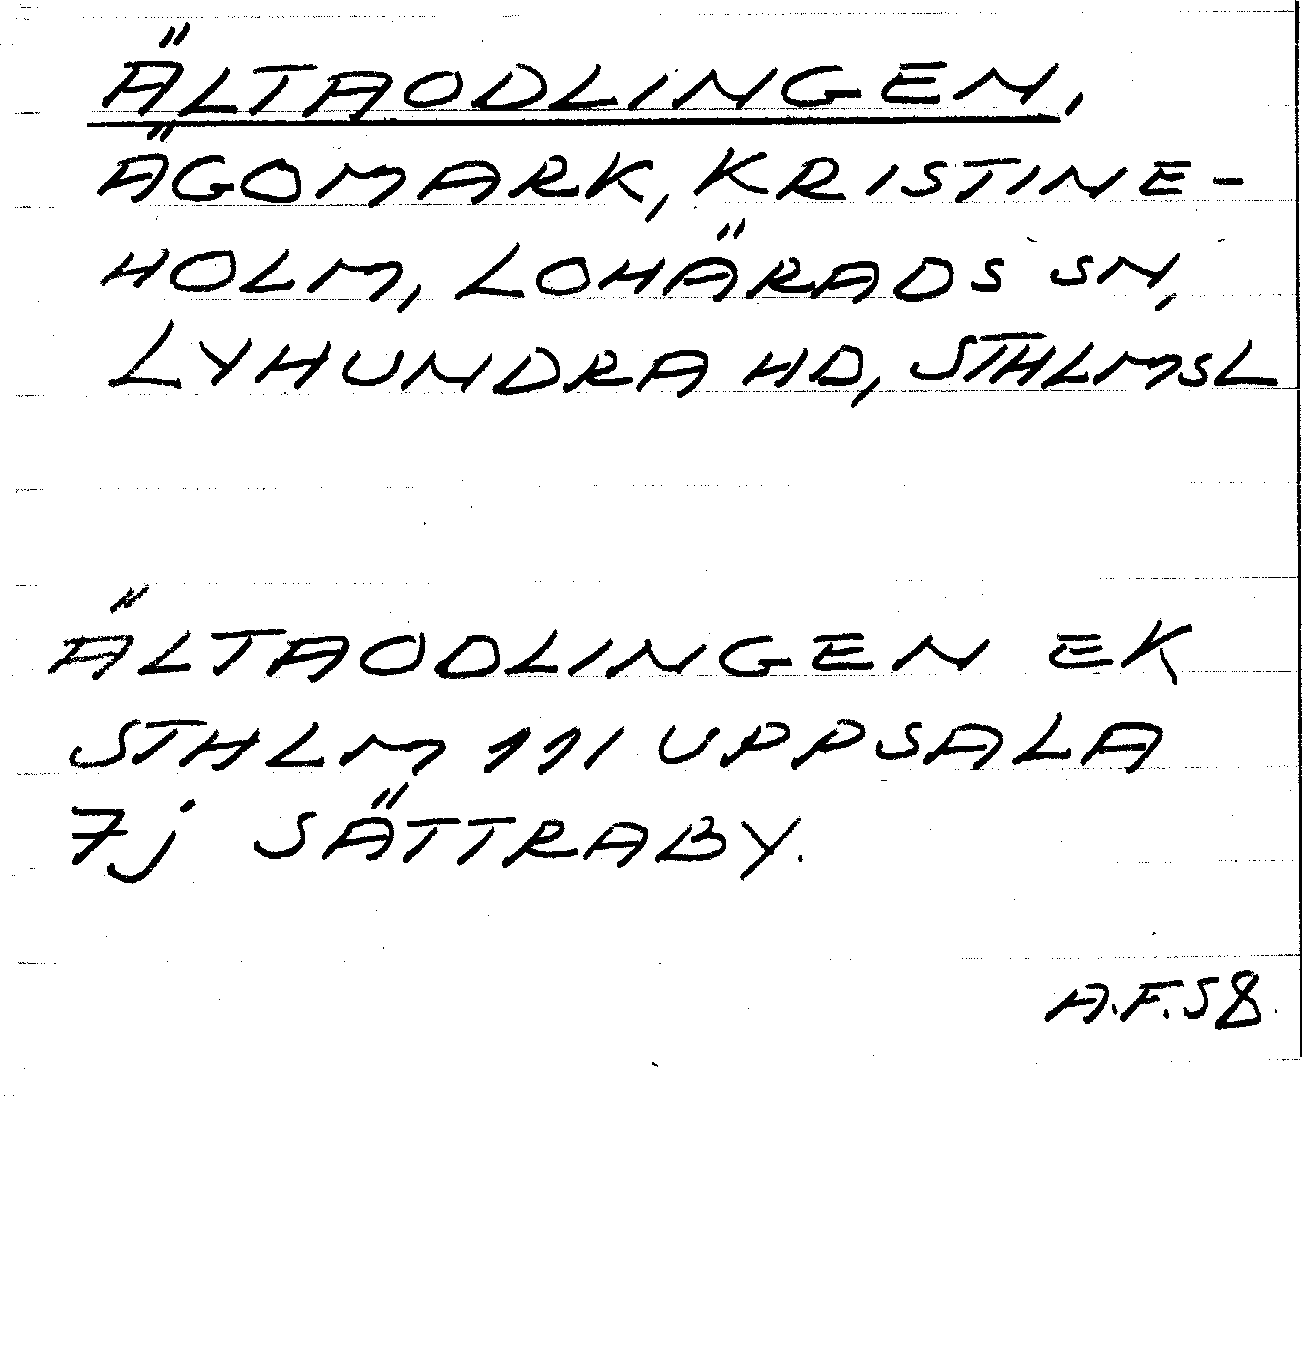 ÄLTAODLINGEN,
ÄGOMARK, KRISTINE-
HOLM, LOHÄRADS SN,
LYHUNDRA HD, STHLMSL
ÄLTAODLINGEN EK
STHLM 11I UPPSALA
7j SÄTTRABY.
A.F.58.